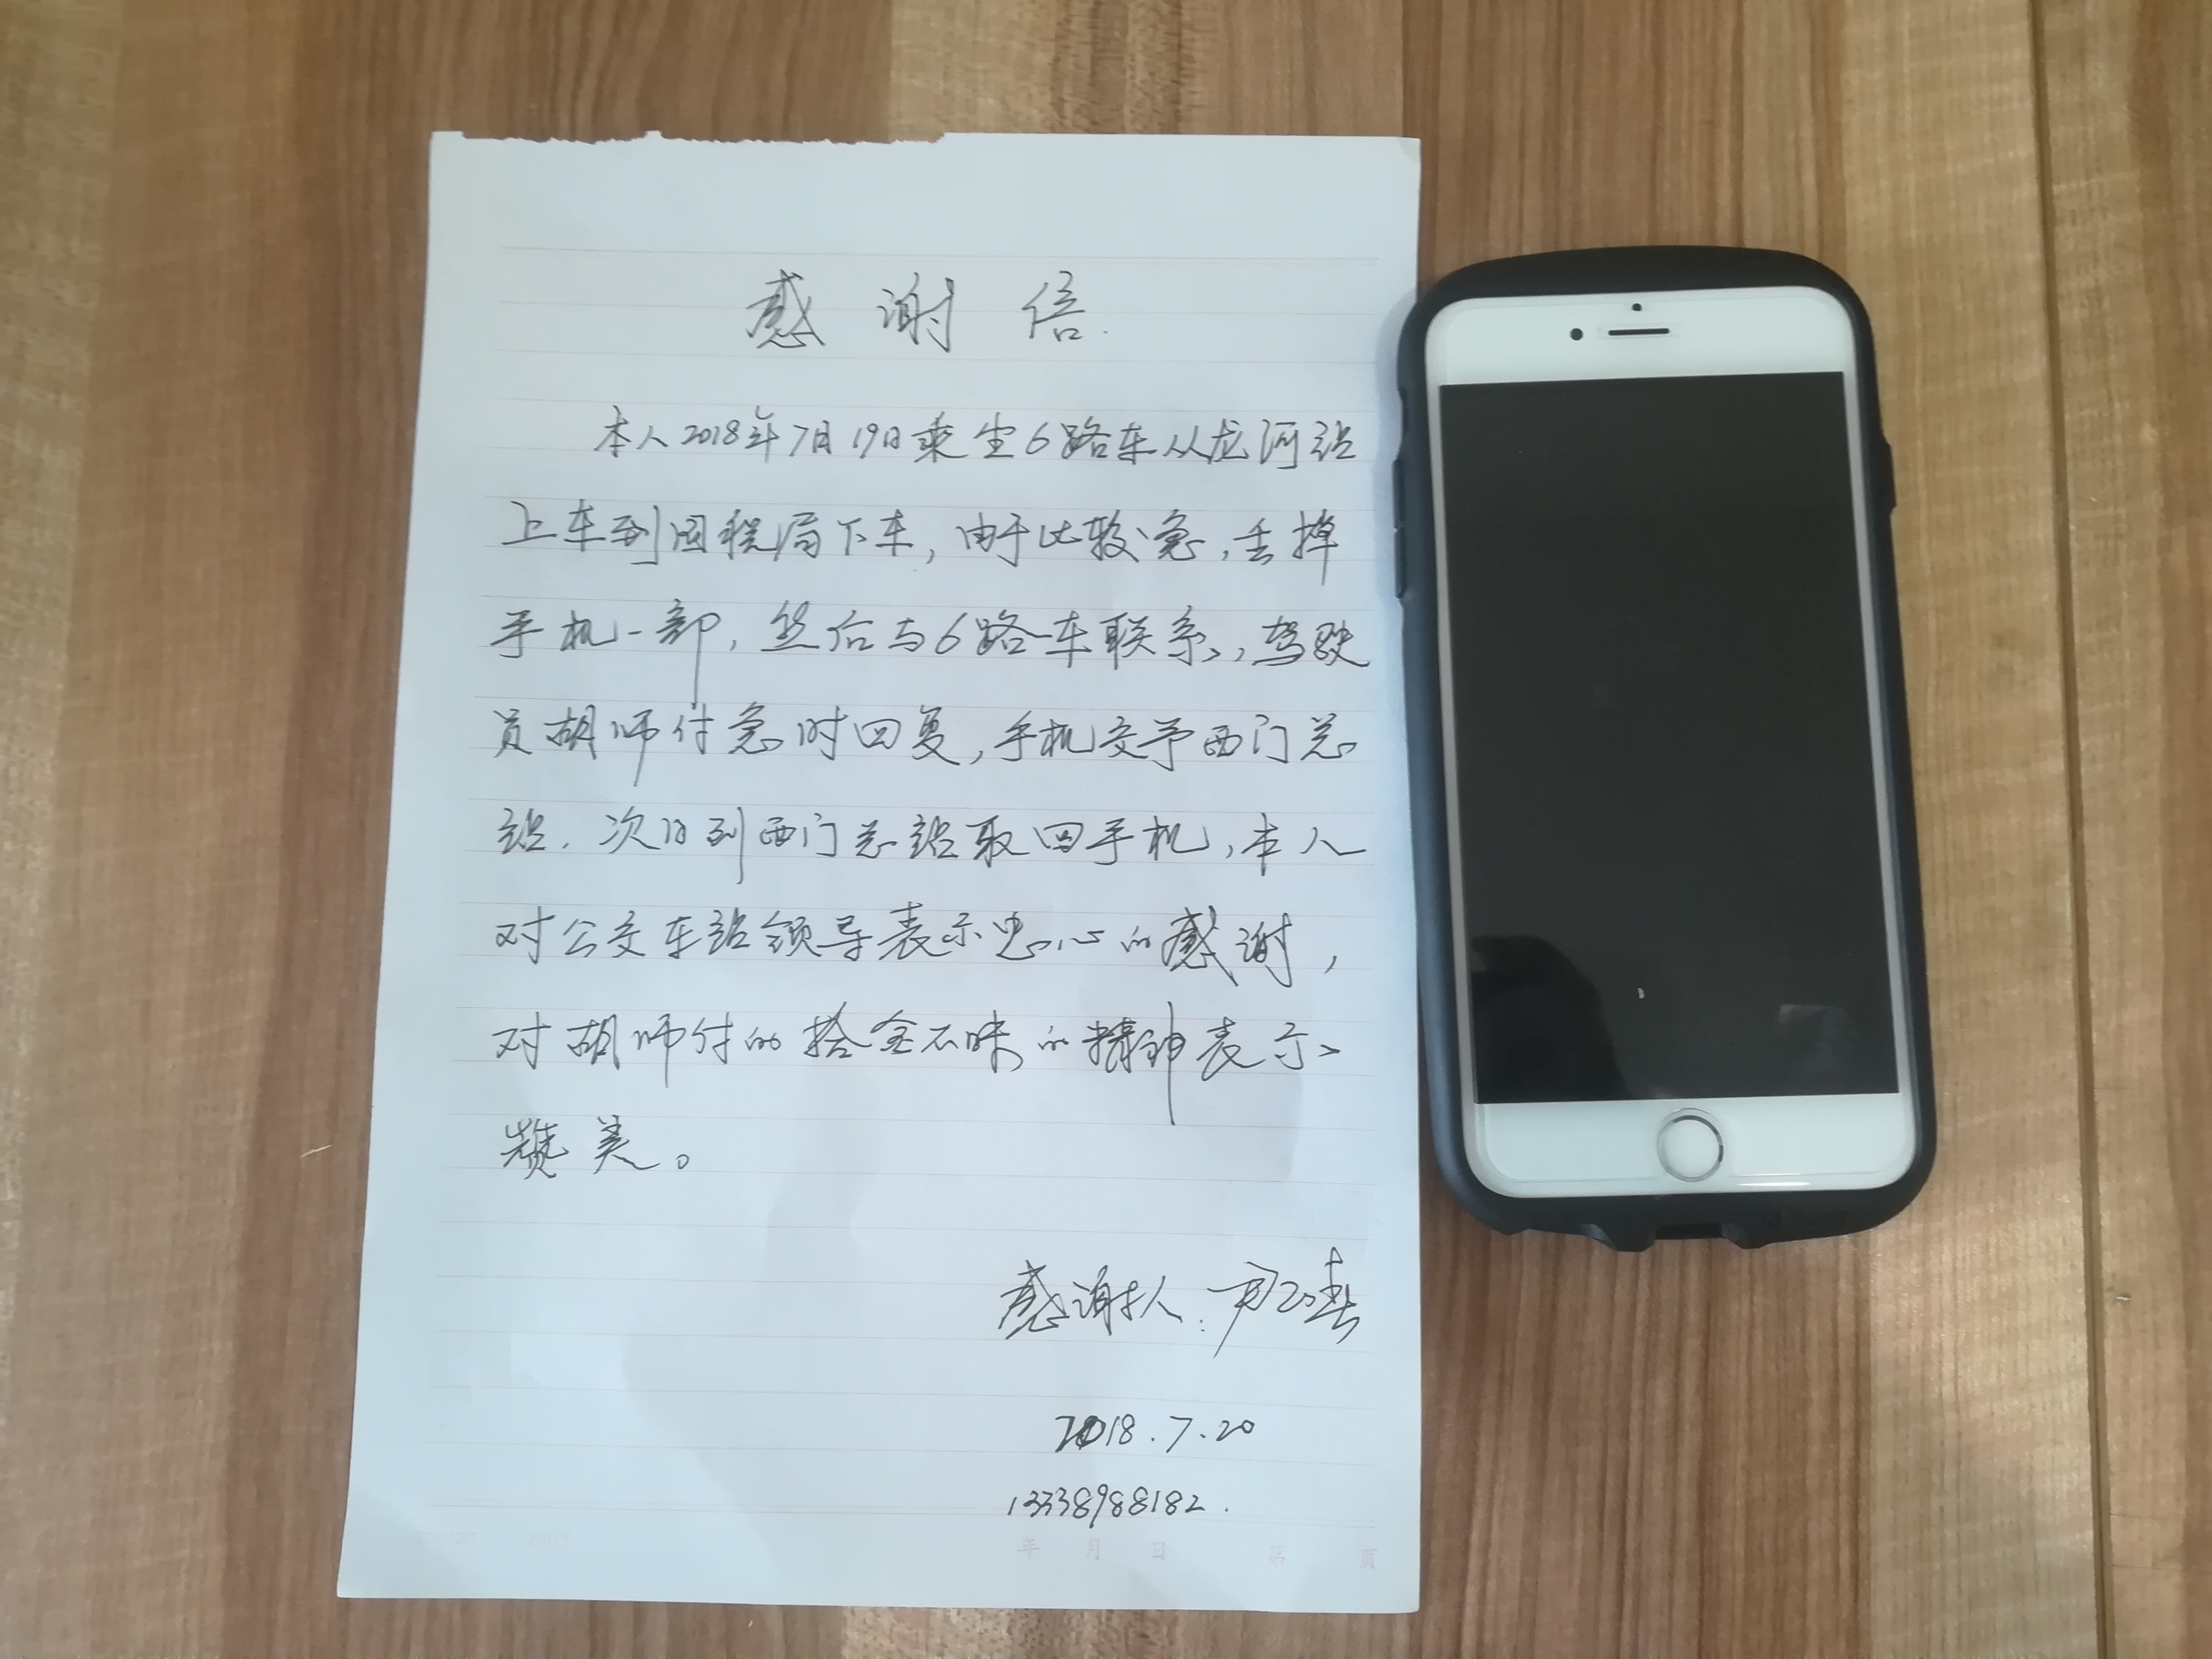 感谢信.
本人2018年7月19日乘坐6路车从龙河站
上车到国税局下车,由于比较急,丢掉
手机一部,然后与6路车联系,驾驶
员胡师付急时回复,手机交予西门总
站.次日到西门总站取回手机,本人
对公交车站领导表示忠心的感谢,
对胡师付的拾金不昧的精神表示
赞美。
感谢人:
2018.7.20
13338988182.
年 月 日 第 页